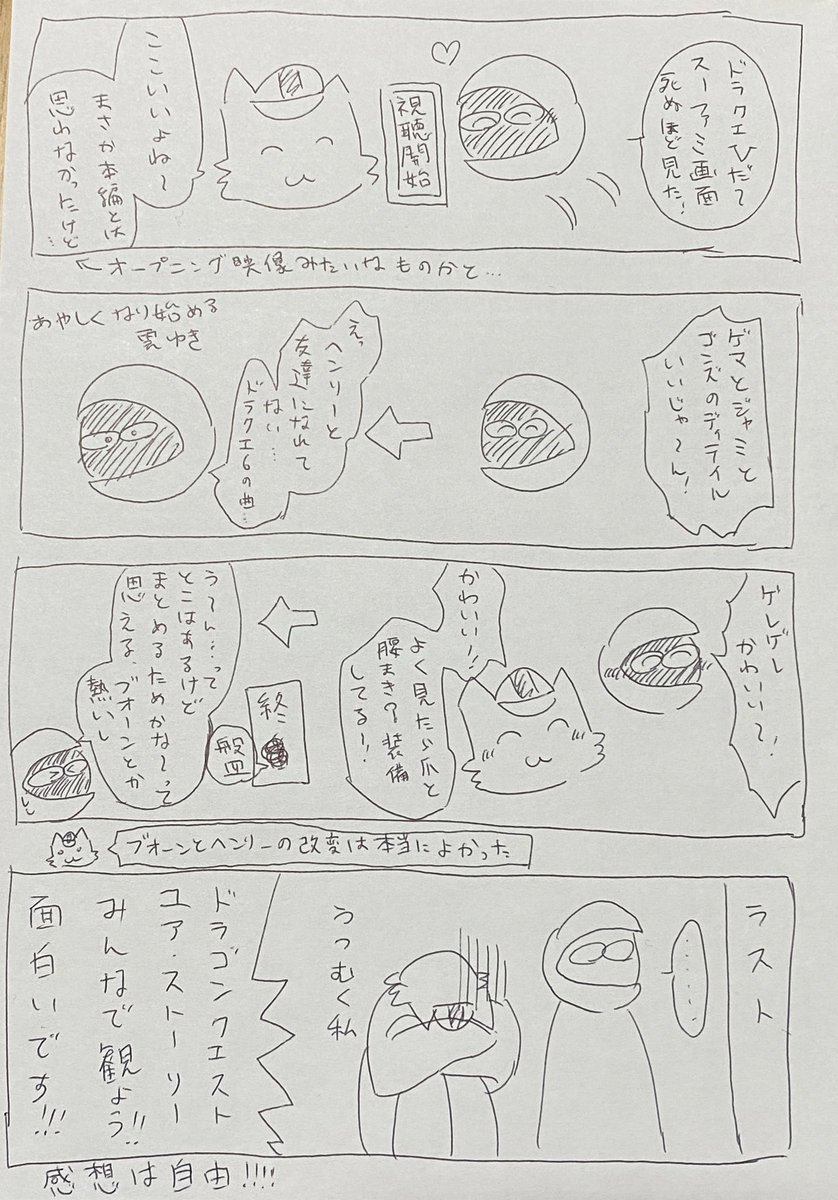 ドラクエひだて
スーファミ画面
死ぬほど見た!
視聴開始
ここいいよね〜
まさか本編とは
思わなかったけど…
←オープニング映像みたいなものかと…
ゲマとジャミと
ゴンズのディテイル
いいじゃ〜ん!
えっ
ヘンリーと
友達になれて
ない…
ドラクエ6の曲…
あやしくなり始める
雲ゆき
ゲレゲレ
かわいい〜!
かわいい!!
よく見たら爪と
腰まきの装備
してる!!
終
盤
う〜ん…って
とこはあるけど
まとめるためかな〜って
思える、ブオーンとか
熱いし
ブオーンとヘンリーの改変は本当によかった
ラスト
……
うつむく私
ドラゴンクエスト
ユア・ストーリー
みんなで観よう!!
面白いです!!!
感想は自由!!!!